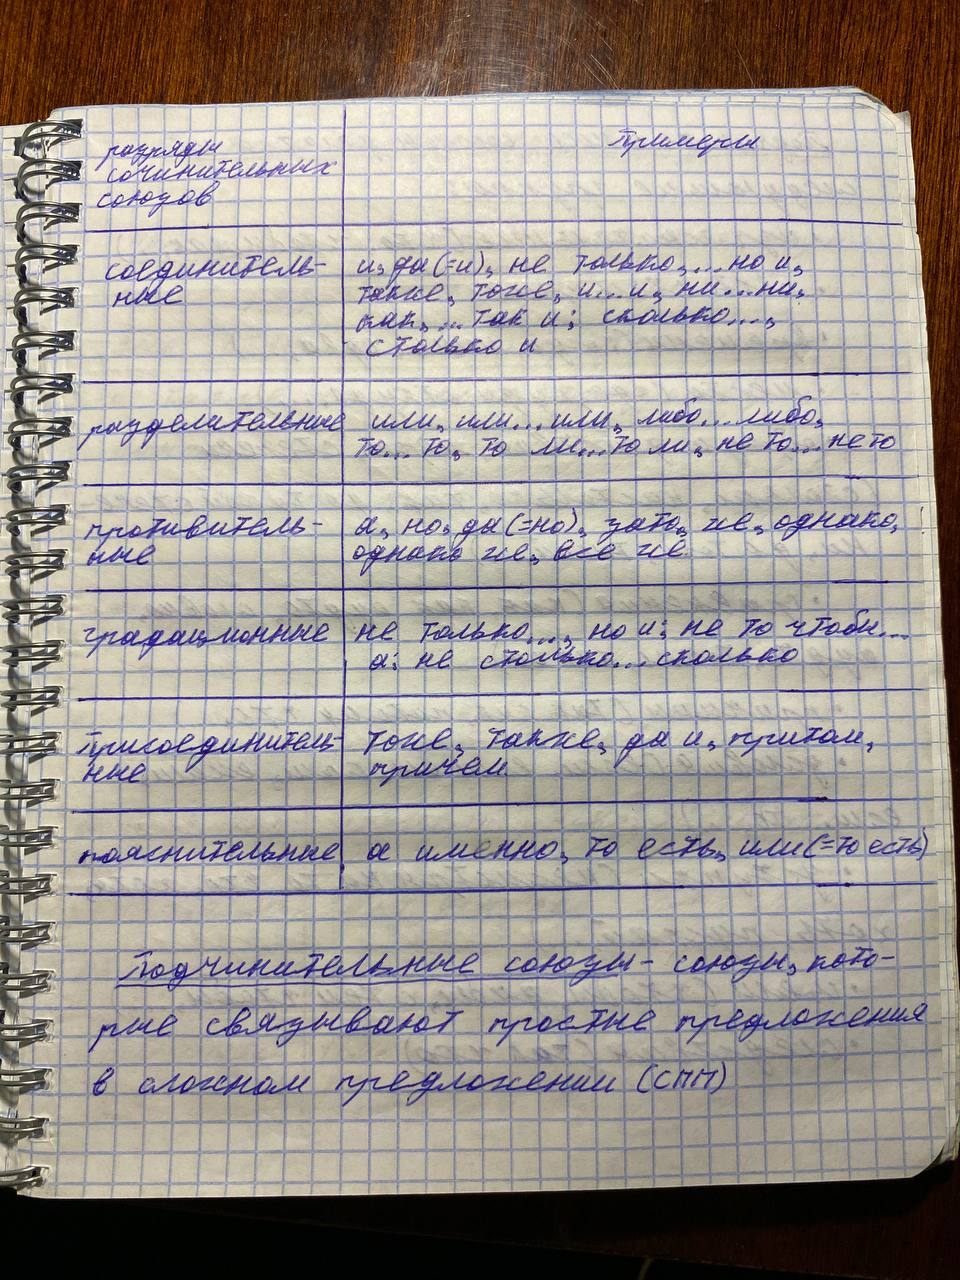 разряды
сочинительных
союзов
Примеры
соединитель-
ные
и, да(=и), не только,...но и,
также, тоже, и...и, ни...ни,
как,...так и; сколько...,
столько и
разделительные
или, или...или, либо...либо,
то...то, то ли...то ли, не то...не то
противитель-
ные
а, но, да(=но), зато, же, однако,
однако же, все же
градационные
не только..., но и; не то чтобы...
а; не столько...сколько
присоединитель-
ные
тоже, также, да и, притом,
причем
пояснительные
а именно, то есть, или(=то есть)
Подчинительные союзы - союзы, кото-
рые связывают простые предложения
в сложном предложении (СПП)